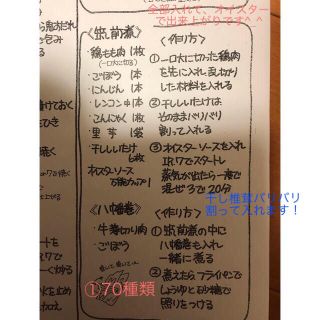 全部入れて、オイスター
で出来上がりです^ ^
《筑前煮》
鶏もも肉 1枚
(一口大に切る)
ごぼう 1本
にんじん 1本
レンコン 中1本
こんにゃく 1枚
里芋 1袋
干ししいたけ
6枚
オイスターソース
《作り方》
① 一口大に切った鶏肉
を先に入れ、乱切り
した材料を入れる
② 干ししいたけは
そのままバリバリ
割って入れる
③ オイスターソースを入れ
I.R.7でスタートし
蒸気が出たら一度
混ぜ3で20分
干し椎茸バリバリ
割って入れます!
《八幡巻》
牛薄切り肉
ごぼう
《作り方》
① 筑前煮の中に
八幡巻も入れ
一緒に煮る
② 煮えたらフライパンで
しょうゆと砂糖で
照りをつける
①70種類